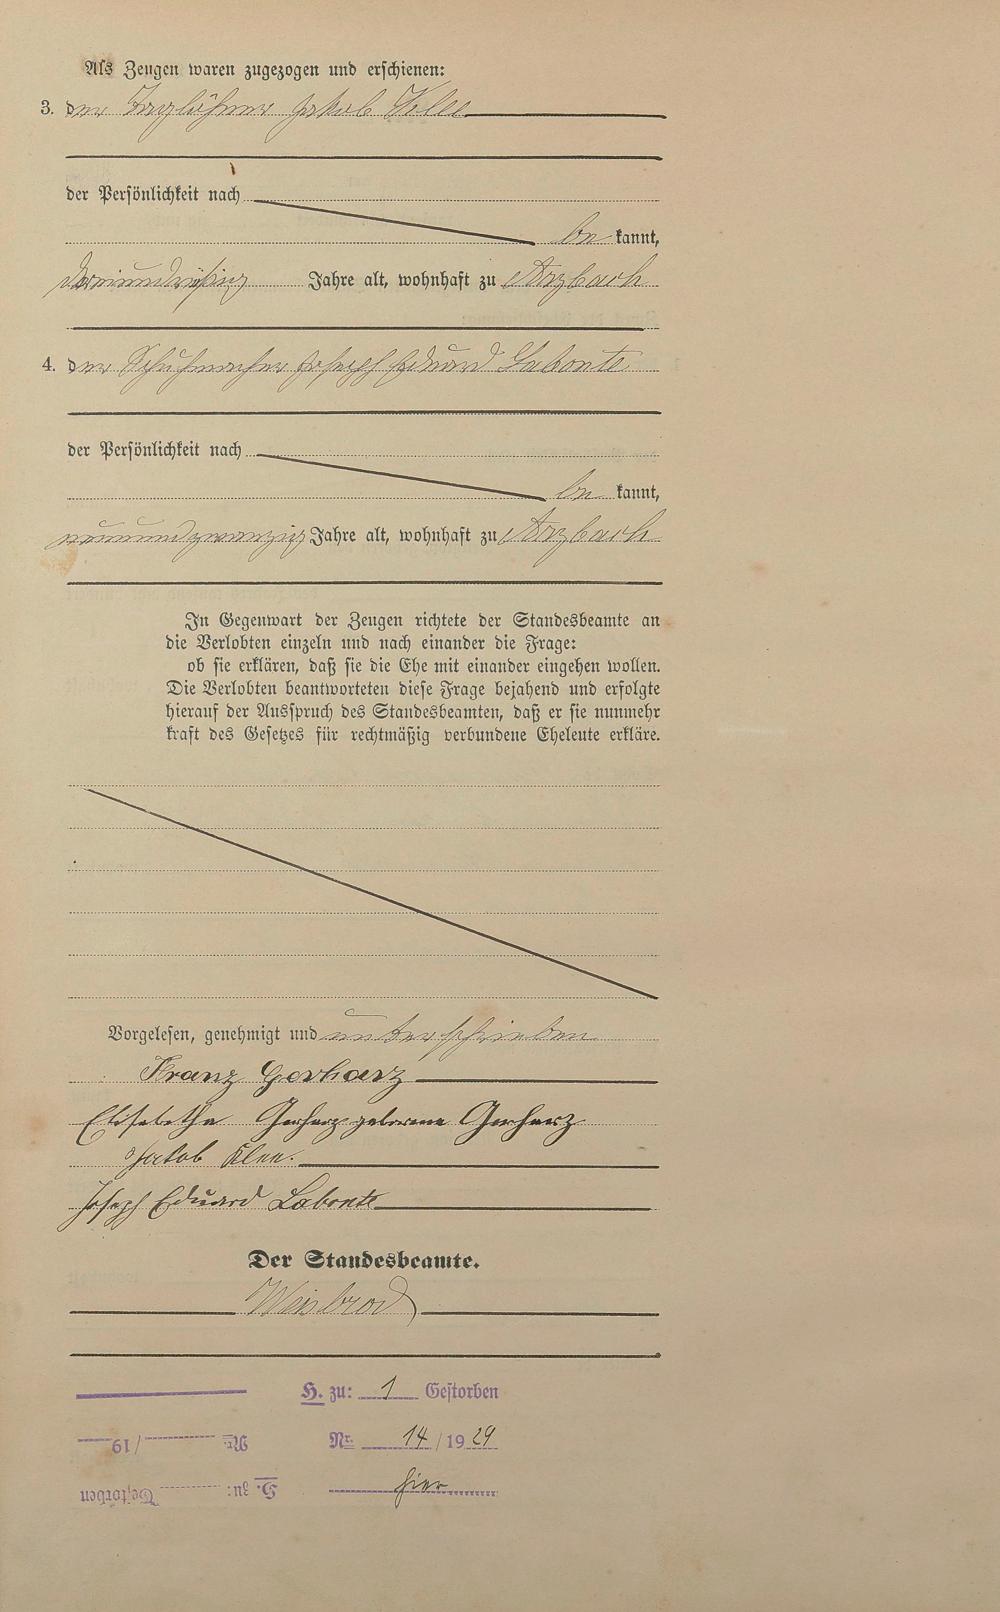 Als Zeugen waren zugezogen und erschienen:
3. der Taglöhner Jakob Klee
der Persönlichkeit nach
be kannt,
dreiunddreißig Jahre alt, wohnhaft zu Arzbach
4. der Schuhmacher Joseph Eduard Labonte
der Persönlichkeit nach
be kannt,
neunundzwanzig Jahre alt, wohnhaft zu Arzbach
In Gegenwart der Zeugen richtete der Standesbeamte an
die Verlobten einzeln und nach einander die Frage:
ob sie erklären, daß sie die Ehe mit einander eingehen wollen.
Die Verlobten beantworteten diese Frage bejahend und erfolgte
hierauf der Ausspruch des Standesbeamten, daß er sie nunmehr
kraft des Gesetzes für rechtmäßig verbundene Eheleute erkläre.
Vorgelesen, genehmigt und unterschrieben
Franz Gerharz
Elisabetha Gerharz geborene Gerharz
Jakob Klee.
Joseph Eduard Labonte
Der Standesbeamte.
Weisbrod
H. zu: 1 Gestorben
Nr. 14/1929
hier
H. zu: Gestorben
Nr. /19